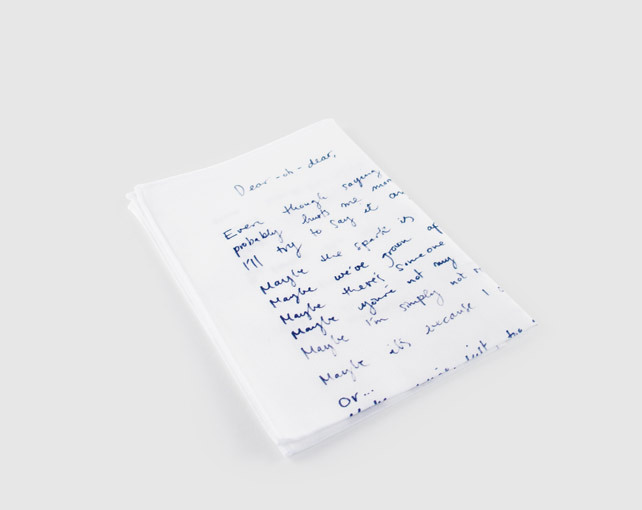 Dear-oh-dear,
Even though saying
probably hurts me
I'll try to say it
Maybe the spark is
Maybe we've grown
Maybe there's someone
Maybe you're not my
Maybe I'm simply not
Maybe it's because I
Or...